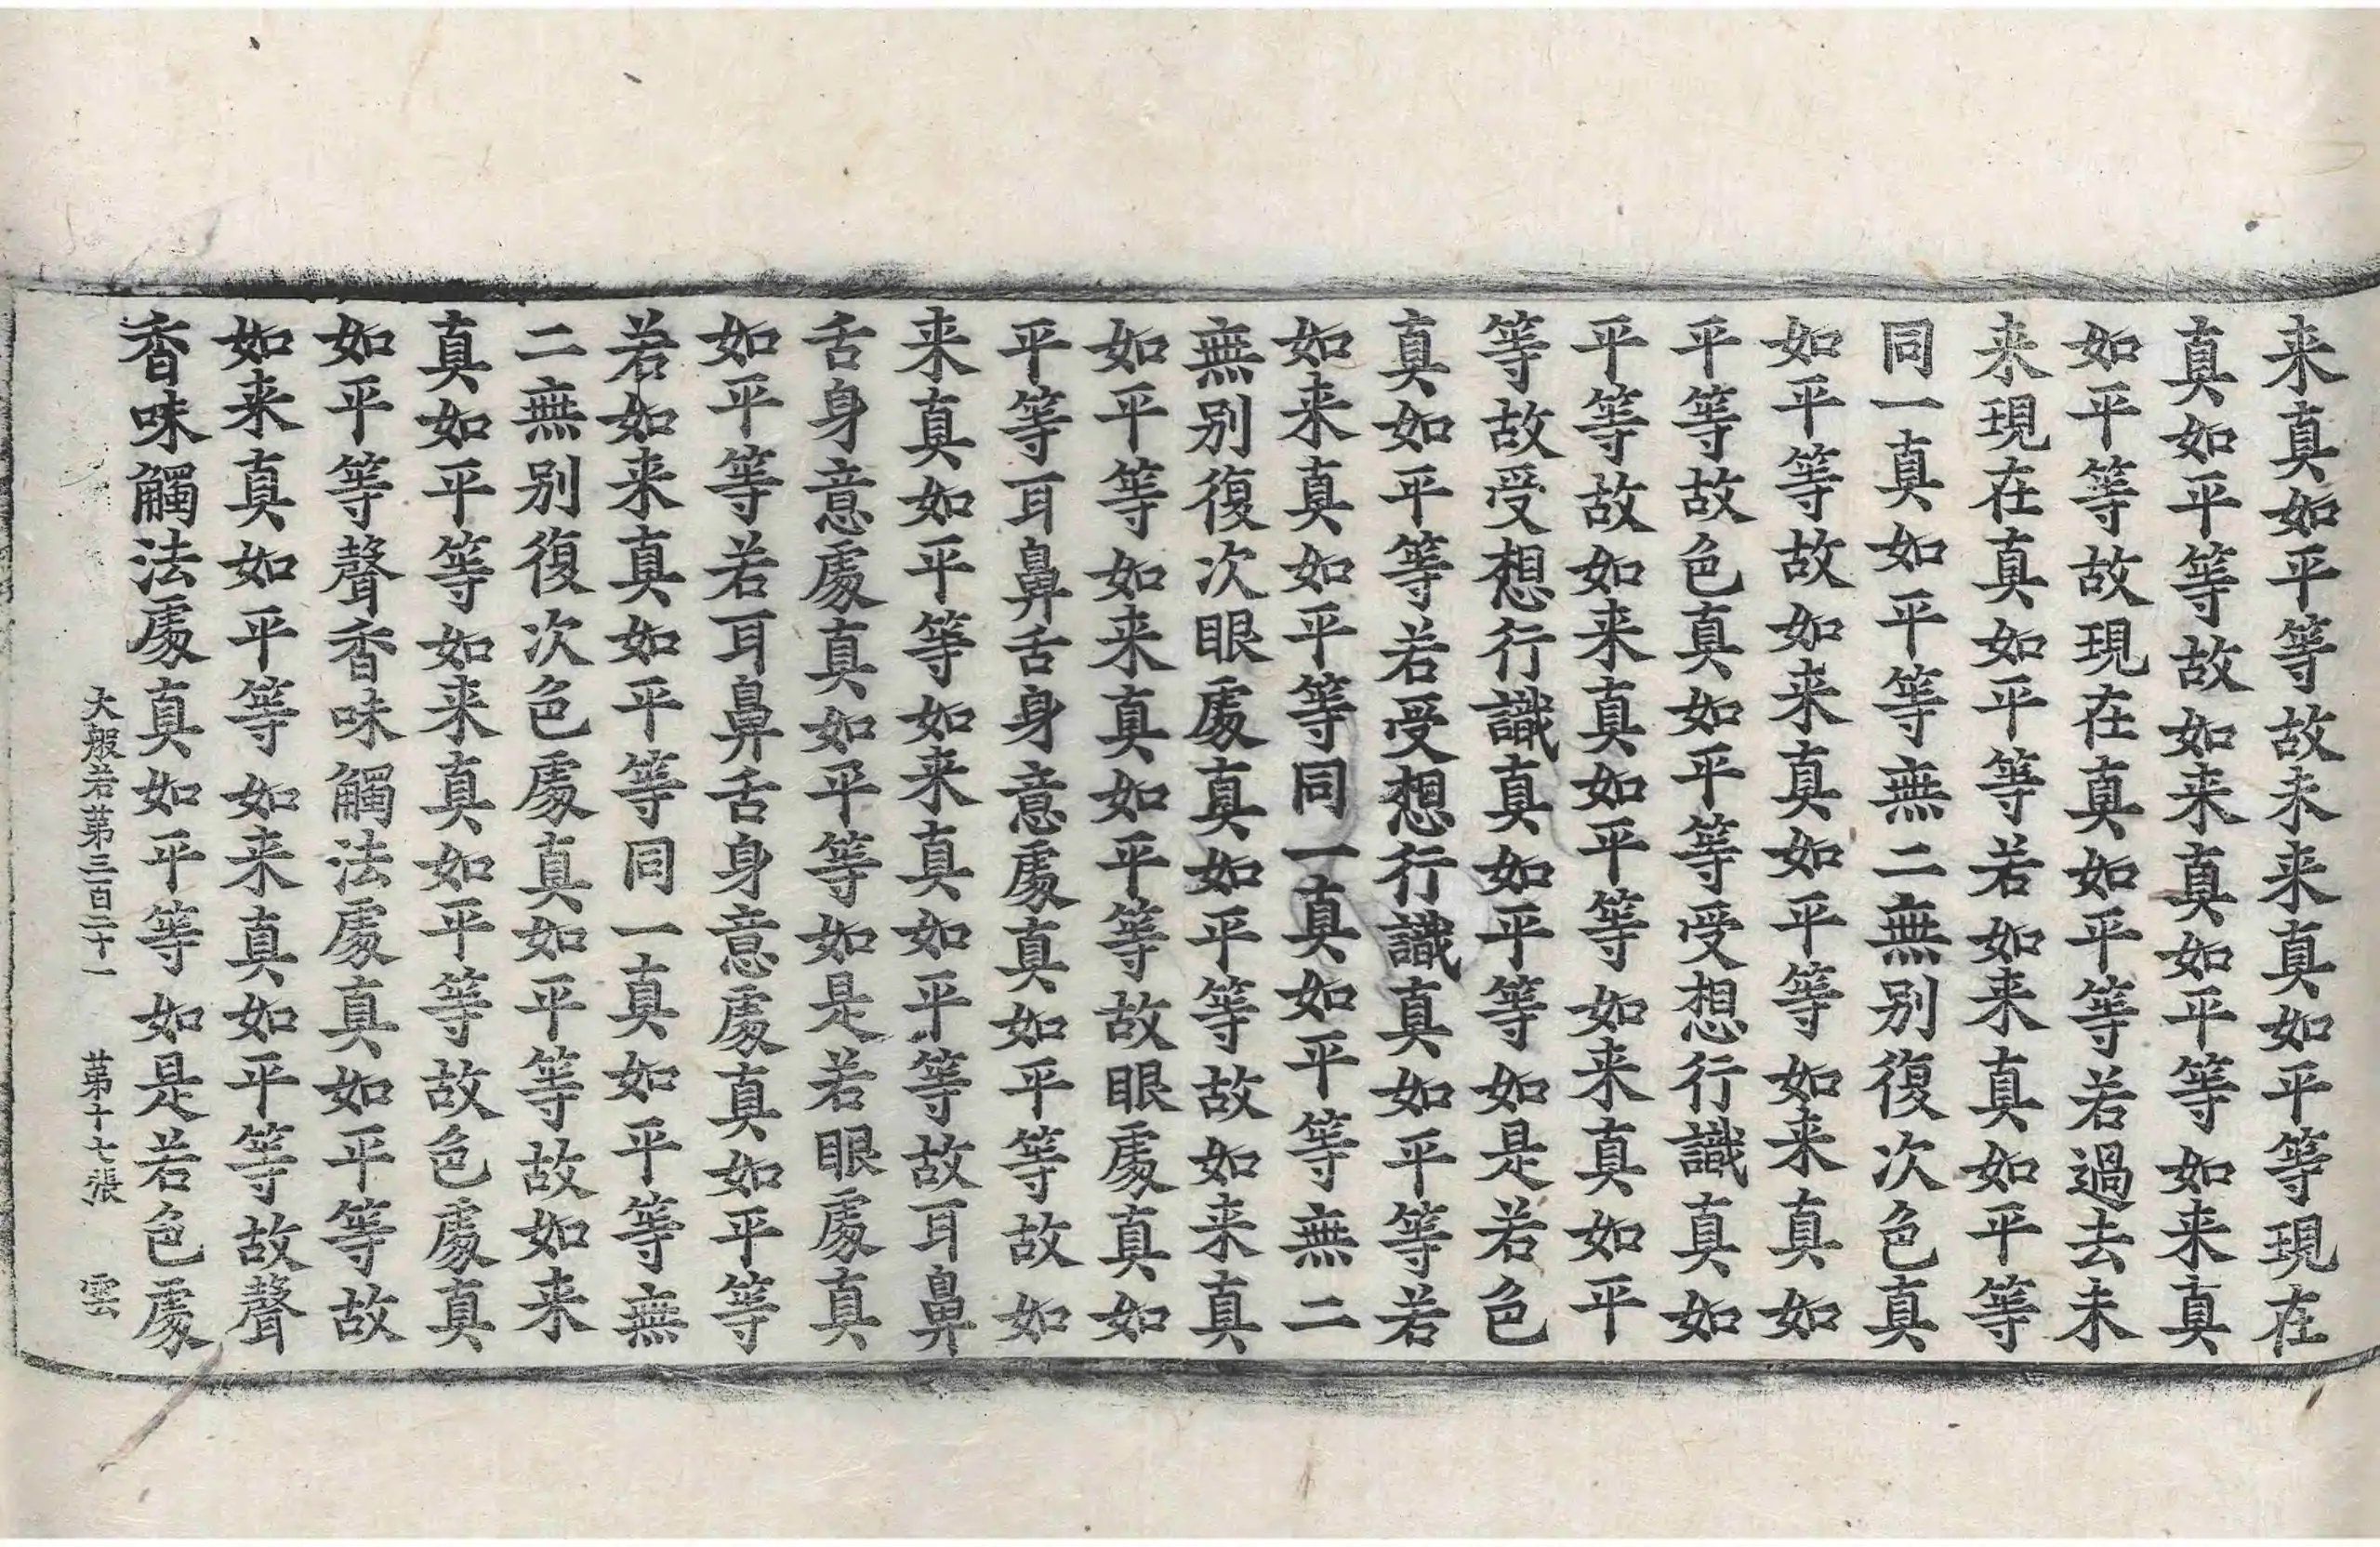 来真如平等故未来真如平等現在
真如平等故如来真如平等如来真
如平等故現在真如平等若過去未
来現在真如平等若如来真如平等
同一真如平等無二無别復次色真
如平等故如来真如平等如来真如
平等故色真如平等受想行識真如
平等故如来真如平等如来真如平
等故受想行識真如平等如是若色
真如平等若受想行識真如平等若
如来真如平等同一真如平等無二
無别復次眼處真如平等故如来真
如平等如来真如平等故眼處真如
平等耳鼻舌身意處真如平等故如
来真如平等如来真如平等故耳鼻
舌身意處真如平等如是若眼處真
如平等若耳鼻舌身意處真如平等
若如来真如平等同一真如平等無
二無别復次色處真如平等故如来
真如平等如来真如平等故色處真
如平等聲香味觸法處真如平等故
如来真如平等如来真如平等故聲
香味觸法處真如平等如是若色處
大般若苐三百二十一 苐十七張 雲